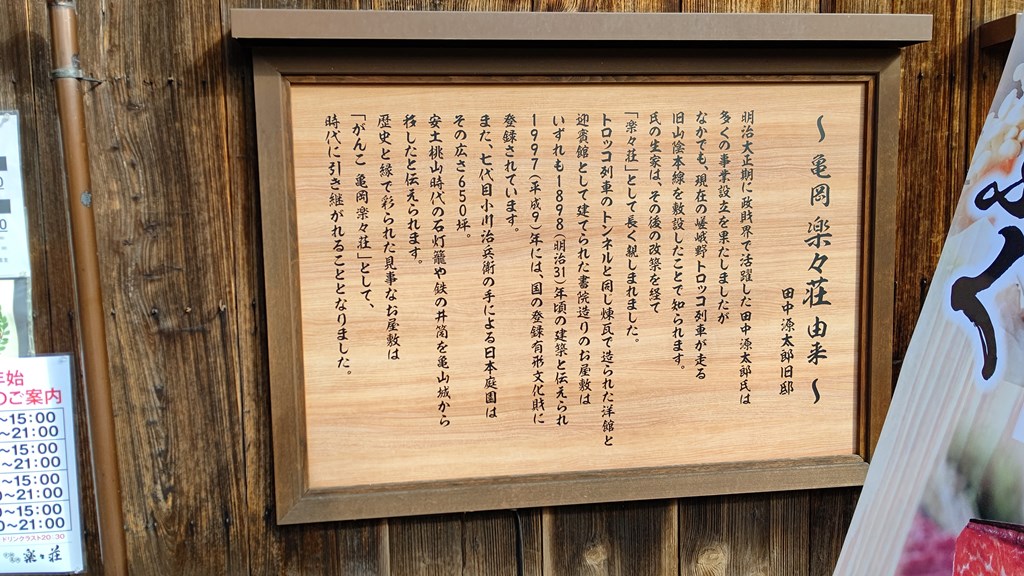 ～亀岡 楽々荘由来～
田中源太郎旧邸
明治大正期に政財界で活躍した田中源太郎氏は
多くの事業設立を果たしましたが
なかでも、現在の嵯峨野トロッコ列車が走る
旧山陰本線を敷設したことで知られます。
氏の生家は、その後の改築を経て
「楽々荘」として長く親しまれました。
トロッコ列車のトンネルと同じ煉瓦で造られた洋館と
迎賓館として建てられた書院造りのお屋敷は
いずれも1898(明治31)年頃の建築と伝えられ
1997(平成9)年には、国の登録有形文化財に
登録されています。
また、七代目小川治兵衛の手による日本庭園は
その広さ650坪。
安土桃山時代の石灯籠や鉄の井筒を亀山城から
移したと伝えられます。
歴史と縁で彩られた見事なお屋敷は
「がんこ 亀岡 楽々荘」として、
時代に引き継がれることとなりました。
年始
のご案内
～15:00
～21:00
～15:00
～21:00
～15:00
0～21:00
0～15:00
0～21:00
ドリンクラスト20:30
楽々荘